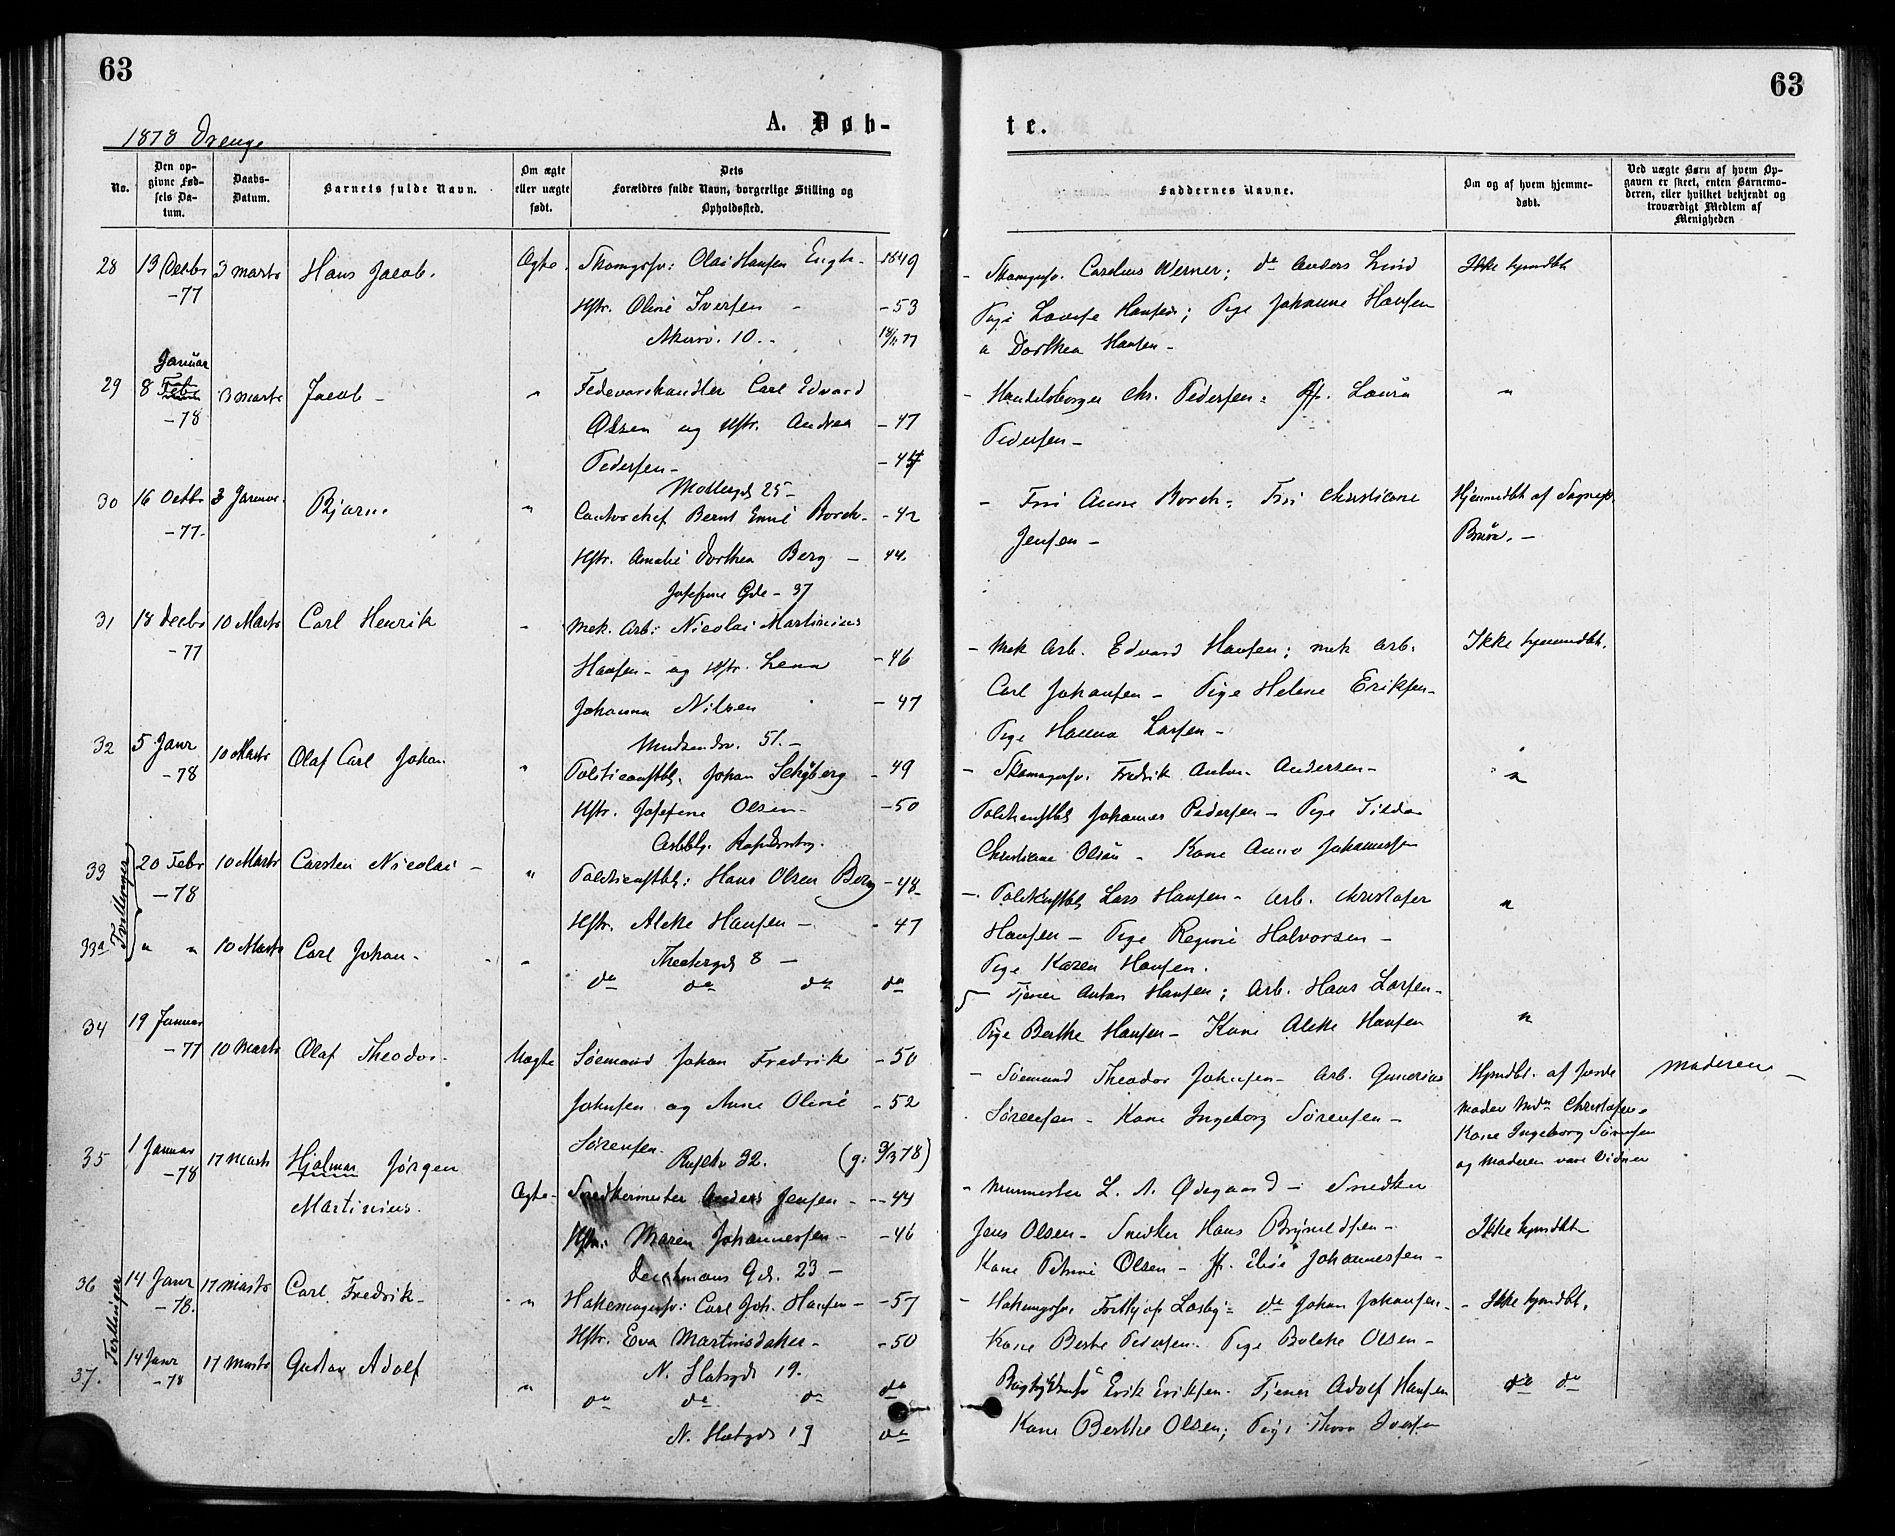 63
63
A. Døb-
te.
1878 Drenge
No.
Den opgivne Fødsels Datum.
Daabs-Datum.
Barnets fulde Navn.
Om ægte eller uægte født.
Dets Forældres fulde Navn, borgerlige Stilling og Opholdssted.
Faddernes Navne.
Om og af hvem hjemmedøbt.
Ved uægte Børn af hvem Opgaven er skeet, enten Barnemoderen, eller hvilket bekjendt og troværdigt Medlem af Menigheden
28 13 Decbr -77 3 Marts Hans Jacob. Ægte. Skomagersv: Olai Hansen Engh - 1849
Hstr. Oline Iversen - 53
Akersv. 10.
- Skomagersv. Carelius Werner; do Anders Lind
Pige Lovise Hansen; Pige Johanne Hansen
" Dorthea Hansen -
Ikke hjemdbt
29 8 Januar Febr -78 3 Marts Jacob - " Fedevarehandler Carl Edvard
Olsen og Hstr. Andrea - 47
Pedersen -
Møllergd 25 -
- Handelsborger Chr. Pedersen: Laura
Pedersen -
"
30 16 Octbr -77- 3 Januar. Bjarne " Contorchef Bernt Emil Borch - 42
Hstr. Amalie Dorthea Berg - 44.
Josefine Gde - 37
- Frø Anne Borch: Frø Christiane
Jensen -
Hjemmedbt af Sognep.
Bruun. -
31 18 Decbr -77 10 Marts Carl Henrik - Mek. Arb: Nicolai Martinius
Hansen - og Hstr. Lena - 46
Johanna Nilsen - 47
51. -
- Mek Arb. Edvard Hansen; mek Arb.
Carl Johansen - Pige Helene Eriksen -
Pige Hanna Larsen -
Ikke hjemmedbt.
32 5 Janr -78 10 Marts Olaf Carl Johan " Politiconstbl. Johan Schøberg - 49
Hstr. Josefine Olsen - 50
- Skomagersv. Fredrik Anton Andersen -
Politiconstbl Johannes Pedersen - Pige Tilda
Christiane Olsen - Kone Anna Johannessen
"
Tvillinger
33 20 Febr -78 10 Marts Carsten Nicolai - " Politiconstbl: Hans Olsen Berg - 48 -
Hstr. Aleke Hansen - - 47
Theatergd 8 -
- Politikonstbl Lars Hansen - Arb. Christofer
Hansen - Pige Regine Halvorsen -
Pige Karen Hansen.
"
33a " " 10 Marts Carl Johan - " do do do do
- Tjener Anton Hansen; Arb. Hans Larsen -
Pige Berthe Hansen - Kone Aleke Hansen
"
34 19 Januar -77 10 Marts Olaf Theodor - Uægte Sømand Johan Fredrik - 50
Johnsen og Anne Oline - 52
Sørensen.
32. (g: 3/3 78)
- Sømand Theodor Johnsen - Arb. Gunerius
Sørensen - Kone Ingeborg Sørensen -
Hjemdbt. af Jorde
moder Christofersen
Kone Ingeborg Sørensen
og Moderen vare Vidner
Moderen -
35 1 Januar -78 17 Marts Hjalmar Jørgen
Martinius.
Ægte - Snedkermester Anders Jensen - - 44
Hstr: Maren Johannessen - - 46
Deichmans Gd. 23 -
- Murmester L. A. Ødegaard - Snedker
Jens Olsen - Snedker Hans Brynildsen -
Kone Petrine Olsen - Jfr. Elise Johannessen -
Ikke hjemdbt
Tvillinger
36 14 Janr -78. 17 Marts Carl Fredrik - " Hatemagersv: Carl Joh. Hansen - - 57
Hstr. Eva Martinsdater - - 50
N. Slotsgd 19.
- Forthjof Losby - do Johan Johansen -
Kone Berte Pedersen. Pige Bolette Olsen -
- Ikke hjemdbt.
37. 14 Janr -78 17 Marts Gustav Adolf " do do do do
N. Slotsgd 19 do
Erik Eriksen. Tjener Adolf Hansen
Kone Berthe Olsen; Pige Thora Iversen
do do